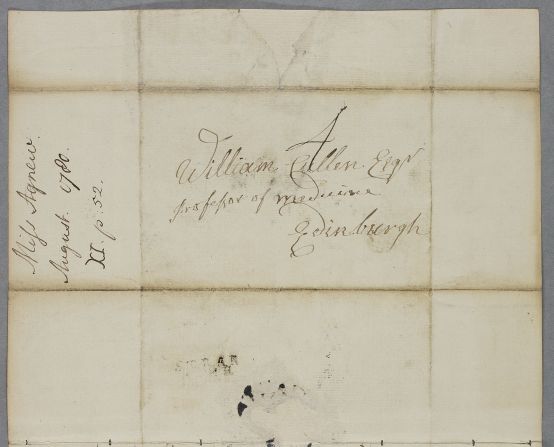 Miss Agnew.
August. 1780.
XI. p: 52.
4
William Cullen Esqr
professor of medicine
Edinburgh